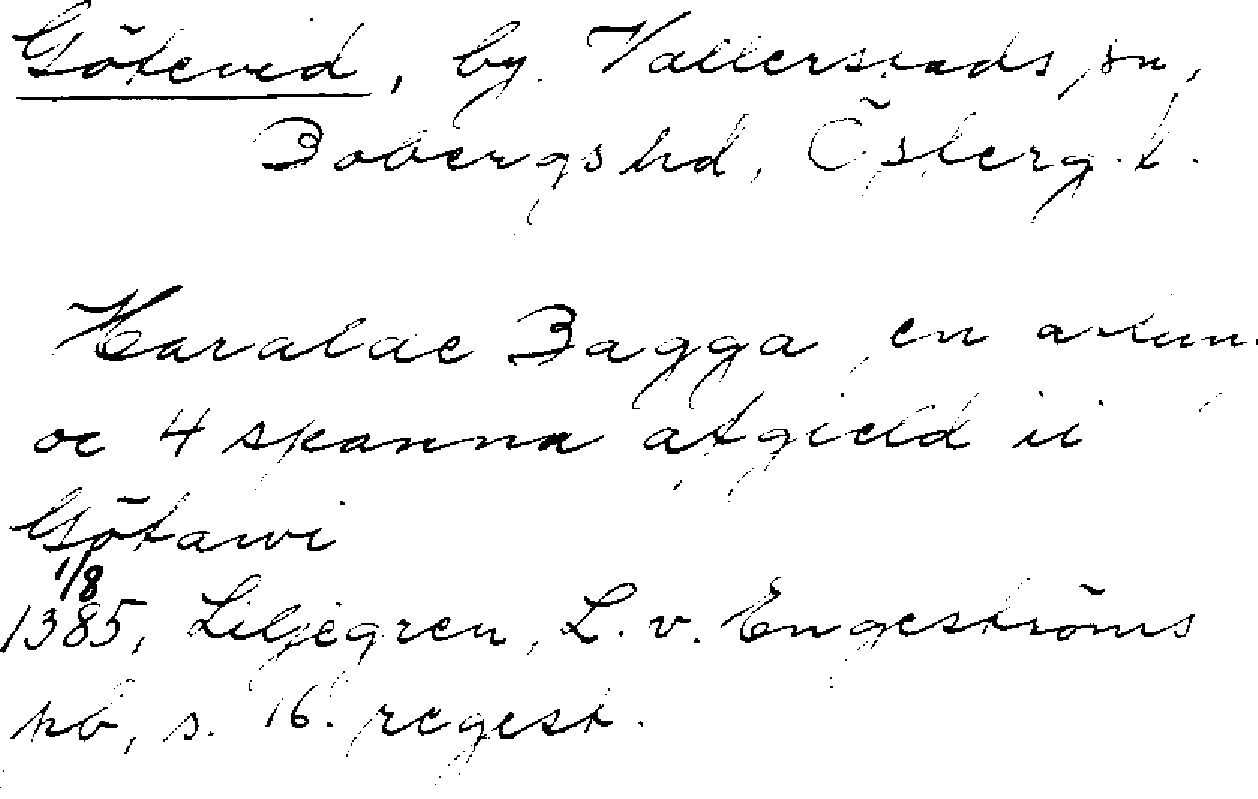 Götevid, by. Vallerstads sn,
Bobergs hd, Österg. l.
Haraldc Bagga en
oc 4 spanna afgield ii
Götawi
1/8
1385, Liljegren, L. v. Engeströms
pb, s. 16. regest.